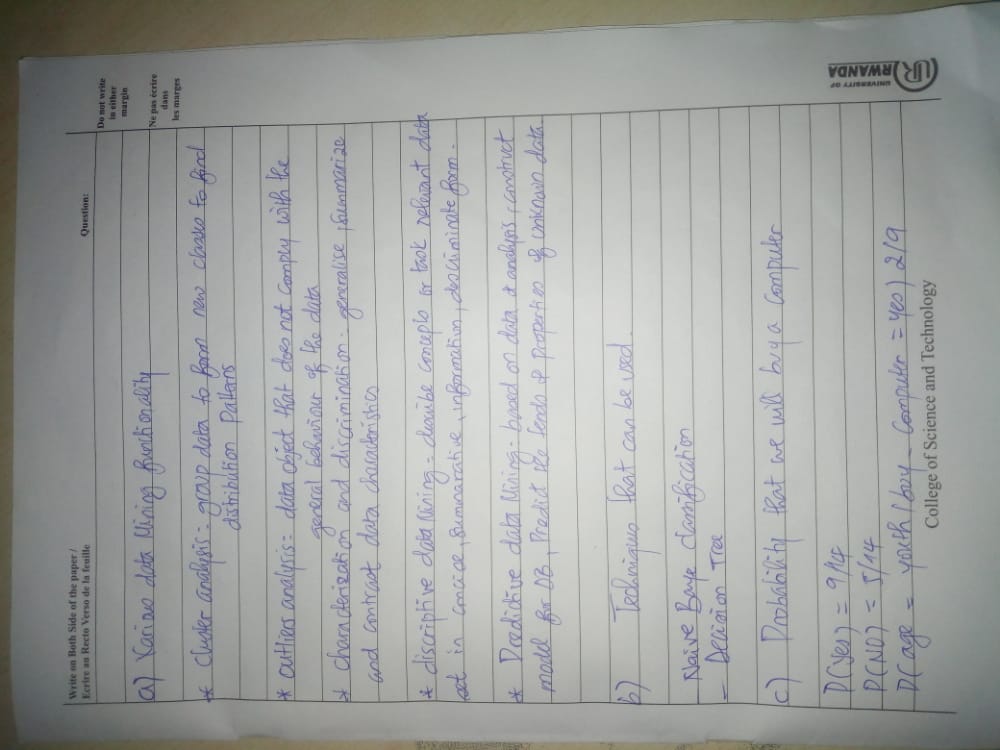 Write on Both Side of the paper /
Ecrire au Recto Verso de la feuille
Question:
Do not write
in either
margin
Ne pas écrire
dans
les marges
UNIVERSITY OF
RWANDA
UR
a) Various data Mining functionality
* cluster analysis:- group data to form new classes to find
distribution patterns
* outliers analysis:- data object that does not comply with the
general behaviour of the data
* characterization and discrimination:- generalise, summarize
and contract data characteristics
* discriptive data Mining:- describe concepts or task relevant data
set in concise, summarative, information, descriminate form.
* Predictive data Mining:- based on data & analysis, construct
model for DB, Predict the trends & properties of unknown data.
b) Techniques that can be used
- Naive Baye classification
- Decision Tree
c) Probability that we will buy a Computer
P(yes) = 9/14
P(NO) = 5/14
P(age = youth / buy_computer = yes) 2/9
College of Science and Technology